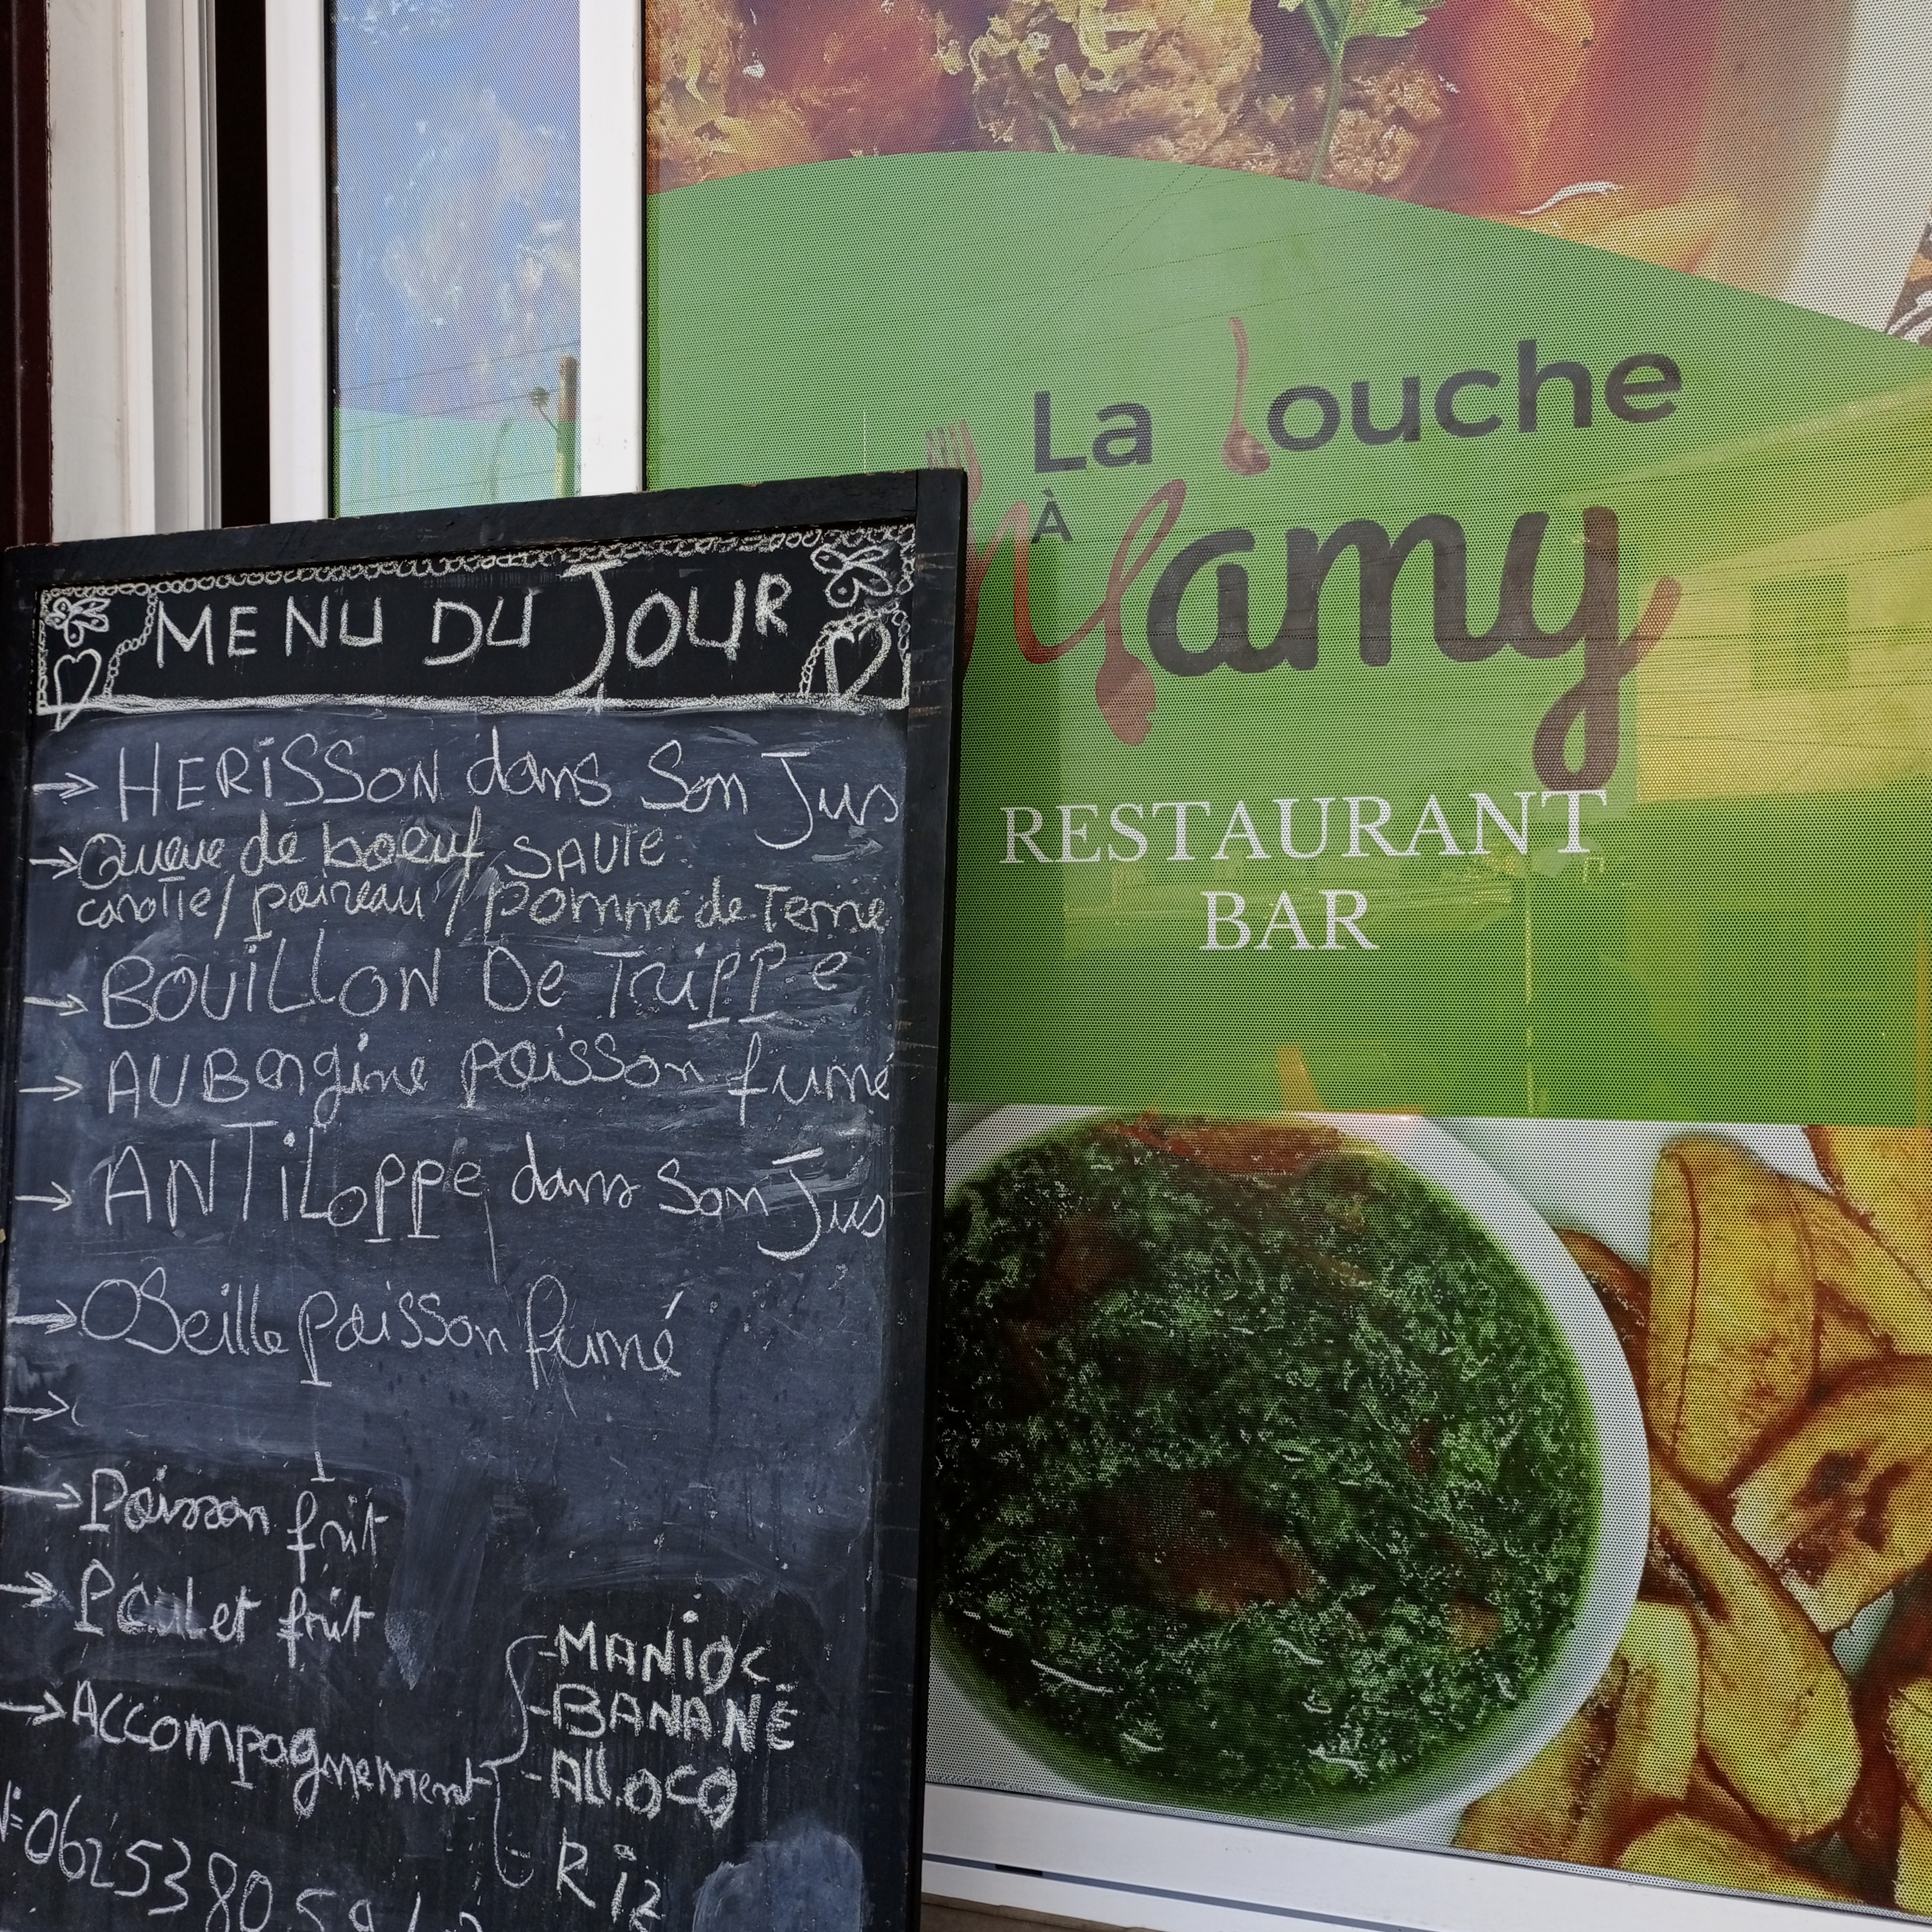 La Louche
À Mamy
RESTAURANT
BAR
MENU DU JOUR
→ HERiSSON dans Son Jus
→ Queue de boeuf SAUTE
carotte/ poireau / pomme de Terre
→ BOUiLLON De TRiPPe
→ AUBergine poisson fumé
→ ANTiLoppe dans Son Jus
→ OSeille poisson fumé
→
→ Poisson frit
→ Poulet frit
→ Accompagnement
-MANiOC
-BANANE
-AllOCO
- RiZ